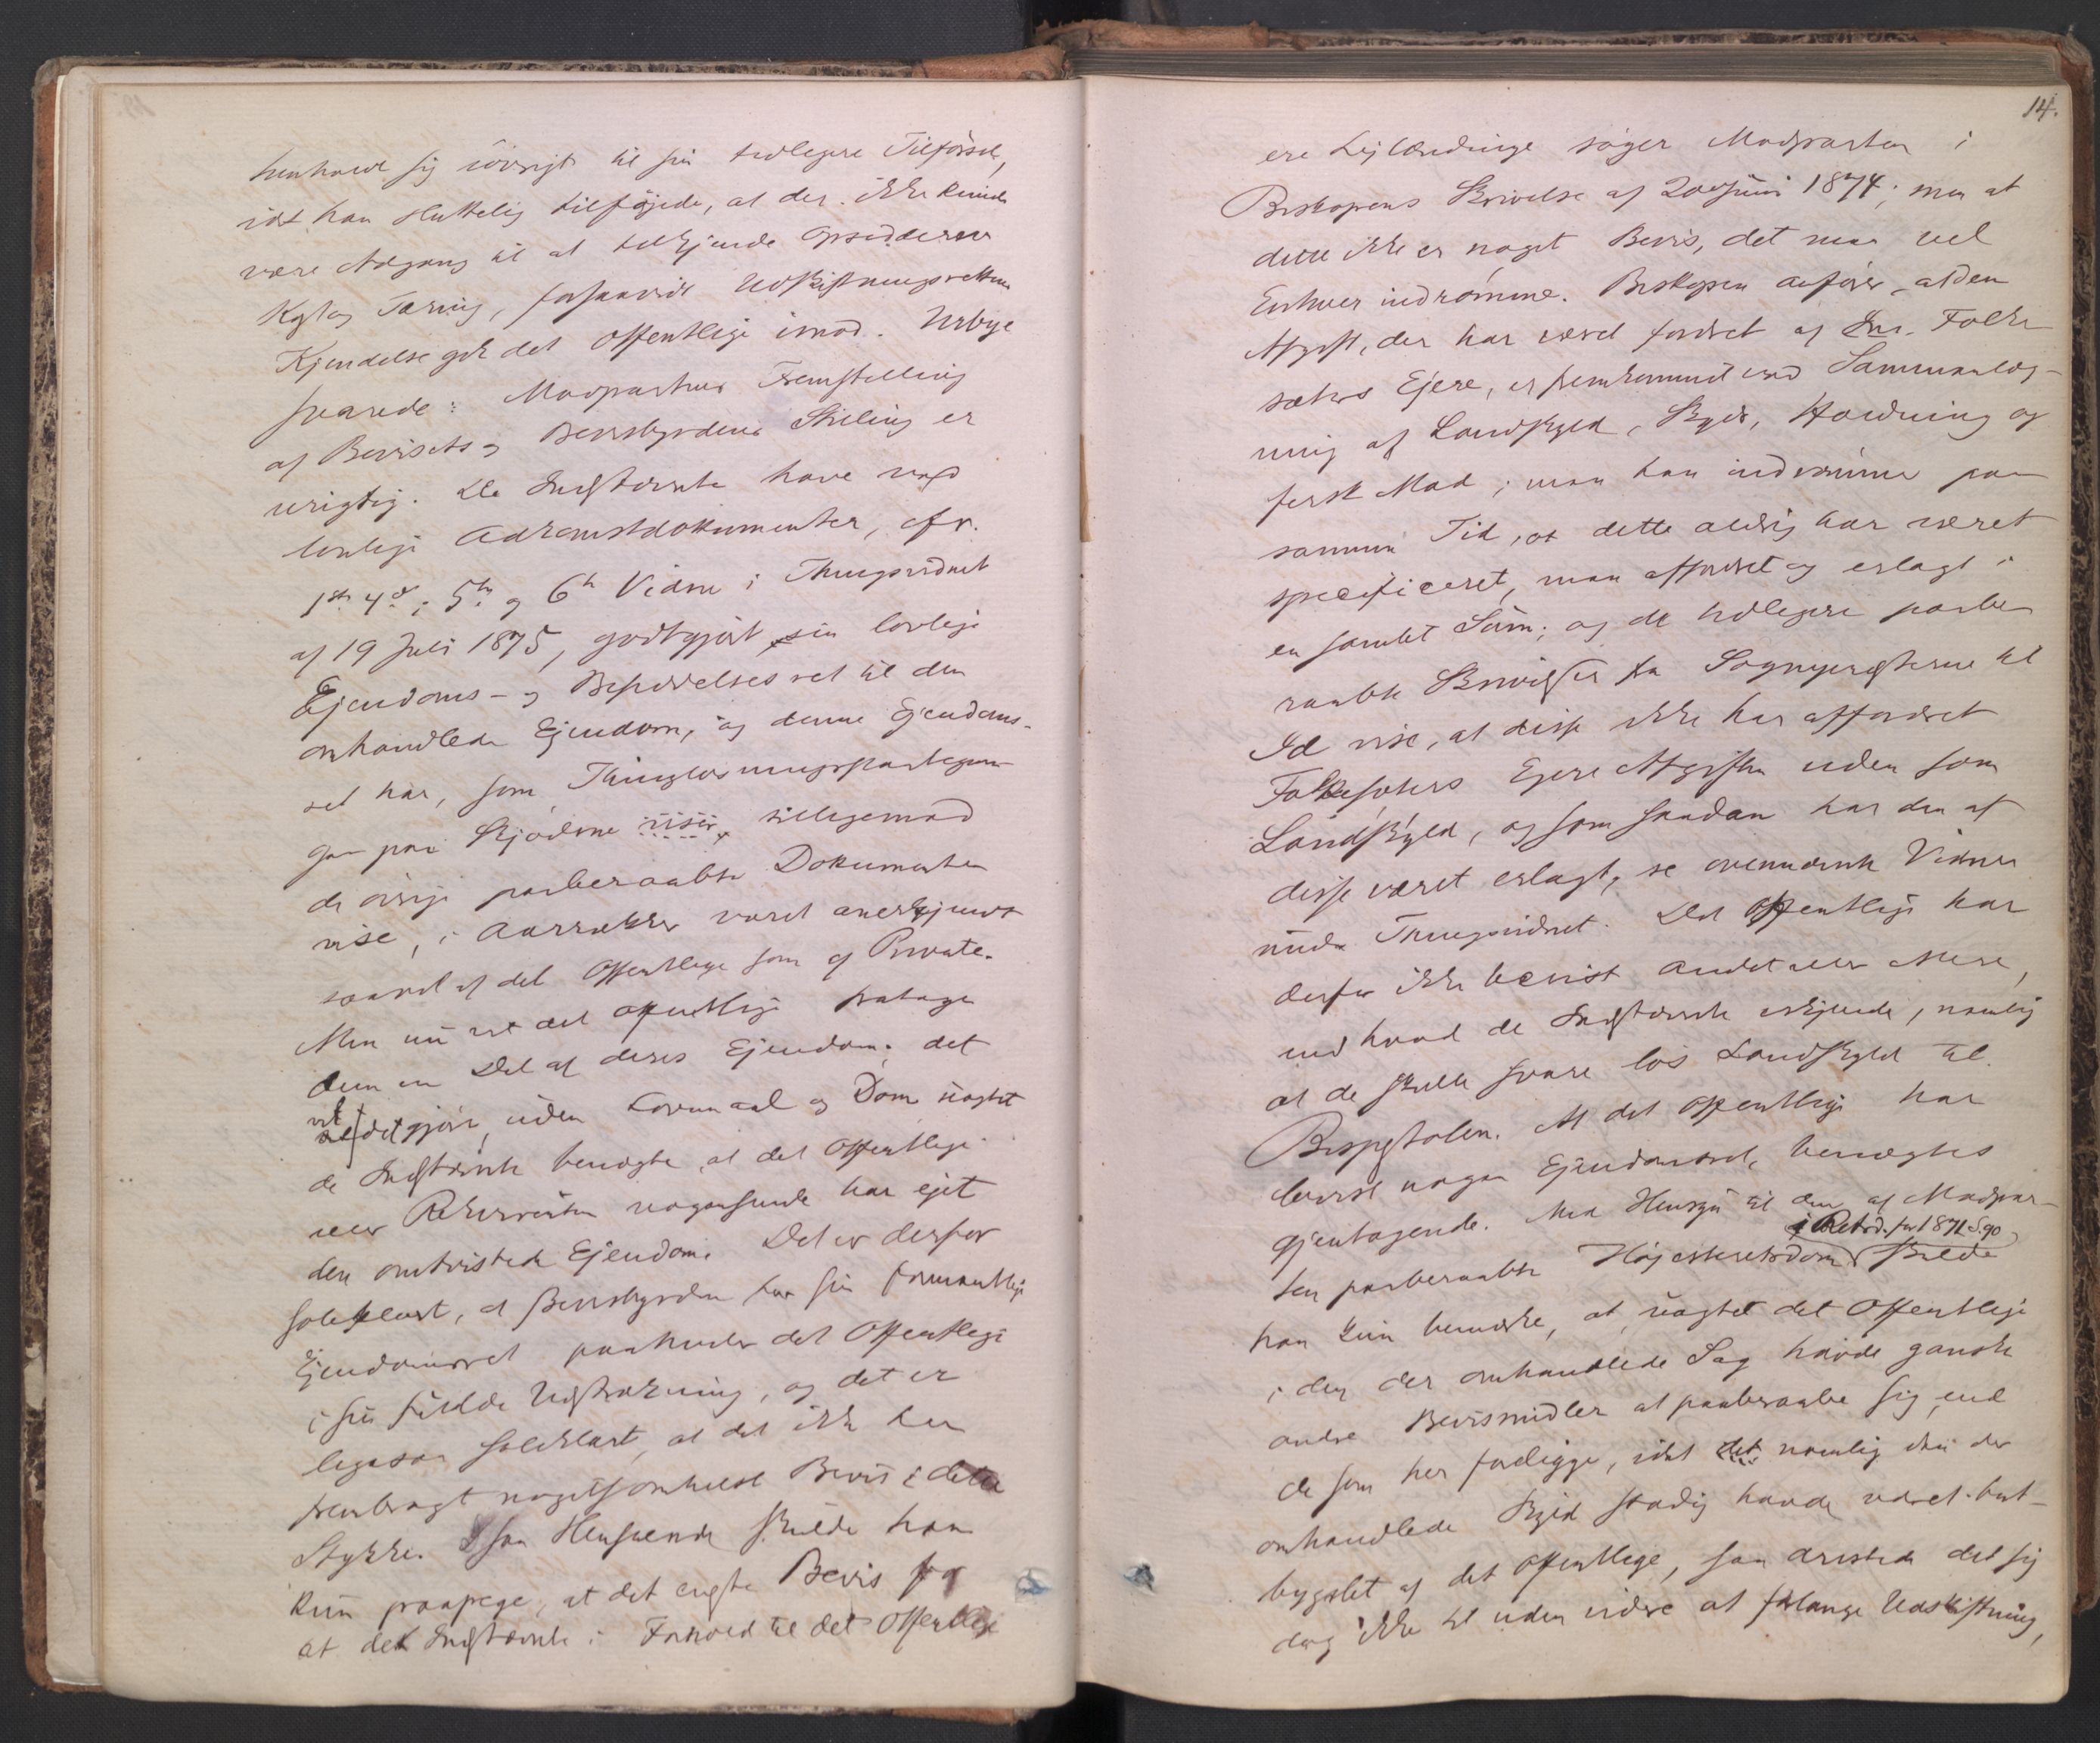 henhold sig iövrigt til sin tidligere Tilförsel,
idet han sluttelig tilföjede, at der ikke kunde
være Adgang til at tilkjende Opsidderen
Kost og Tæring, forsaavidt Udskiftningsrettens
Kjendelse gik det Offentlige imod. Urbye
svarede: Modpartens Fremstilling
af Bevisets og Bevisbyrdens Stilling er
urigtig. De Indstævnte have ved
lovlige Adkomstdokumenter, cfr.
1ste 4de, 5te og 6te Vidne i Thingsvidnet
af 19 Juli 1875, godtgjort sin lovlige
Ejendoms- og Besiddelsesret til den
omhandlede Ejendom, og denne Ejendoms-
ret har, som Thinglæsningspaategnin-
gen paa Skjöderne viser, tilligemed
de övrige paaberaabte Dokumenter
vise, i Aarrækker været anerkjendt
saavel af det Offentlige som af Private.
Men nu vil det offentlige fratage
dem en Del af deres Ejendom; det
vil det gjöre, uden Lovmaal og Dom uagtet
de Indstævnte benegte, at det Offentlige
eller Rekvirenten nogensinde har ejet
den omtvistede Ejendom. Det er derfor
soleklart, at Bevisbyrden for sin formentlige
Ejendomsret paahviler det Offentlige
i sin fulde Udstrækning, og det er
ligesaa soleklart, at det ikke har
frembragt nogetsomhelst Bevis i dette
Stykke. I saa Henseende skulde han
kun paapege, at det eneste Bevis for
at de Indstævnte i Forhold til det Offentlige
14.
ere Lejlændinge söger Modparten i
Biskopens Skrivelse af 20de Juni 1874; men at
dette ikke er noget Bevis, det maa vel
Enhver indrömme. Biskopen anförer, at den
Afgift, der har været fordret af Folke-
sæters Ejere, er fremkommet ved Sammenlæg-
ning af Landskyld, Skyds, Holdning og
fersk Mad; men han indrömmer paa
samme Tid, at dette aldrig har været
specificeret, men affordret og erlagt i
en samlet Sum; og de tidligere paabe-
raabte Skrivelser fra Sognepræsterne til
Id vise, at disse ikke har affordret
Folkesæters Ejere Afgiften uden som
Landskyld, og som saadan har den af
disse været erlagt, se ovennævnte Vidner
under Thingsvidnet. Det Offentlige har
derfor ikke bevist Andet eller Mere,
end hvad de Indstævnte erkjende, nemlig
at de skulle svare lös Landskyld til
Bispestolen. At det offentlige har
bevist nogen Ejendomsret, benegtes
gjentagende. Med Hensyn til den af Modpar-
ten paaberaabte Höjesteretsdom i Retst. for 1871 S. 90, skulde
han kun bemærke, at, uagtet det Offentlige
i den der omhandlede Sag havde ganske
andre Bevismidler at paaberaabe sig, end
de som her foreligge, idet det nemlig den der
omhandlede Skyld stadig havde været bort-
bygslet af det Offentlige, saa dristede det sig
dog ikke til uden videre at forlange Udskiftning,